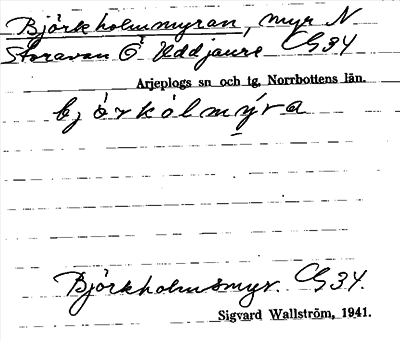 Björkholmmyran, myr N
Storavan Ö Uddjaure CG34
Arjeplogs sn och tg, Norrbottens län.
bjórkólmýra
Björkholmsmyr. CG34.
Sigvard Wallström, 1941.